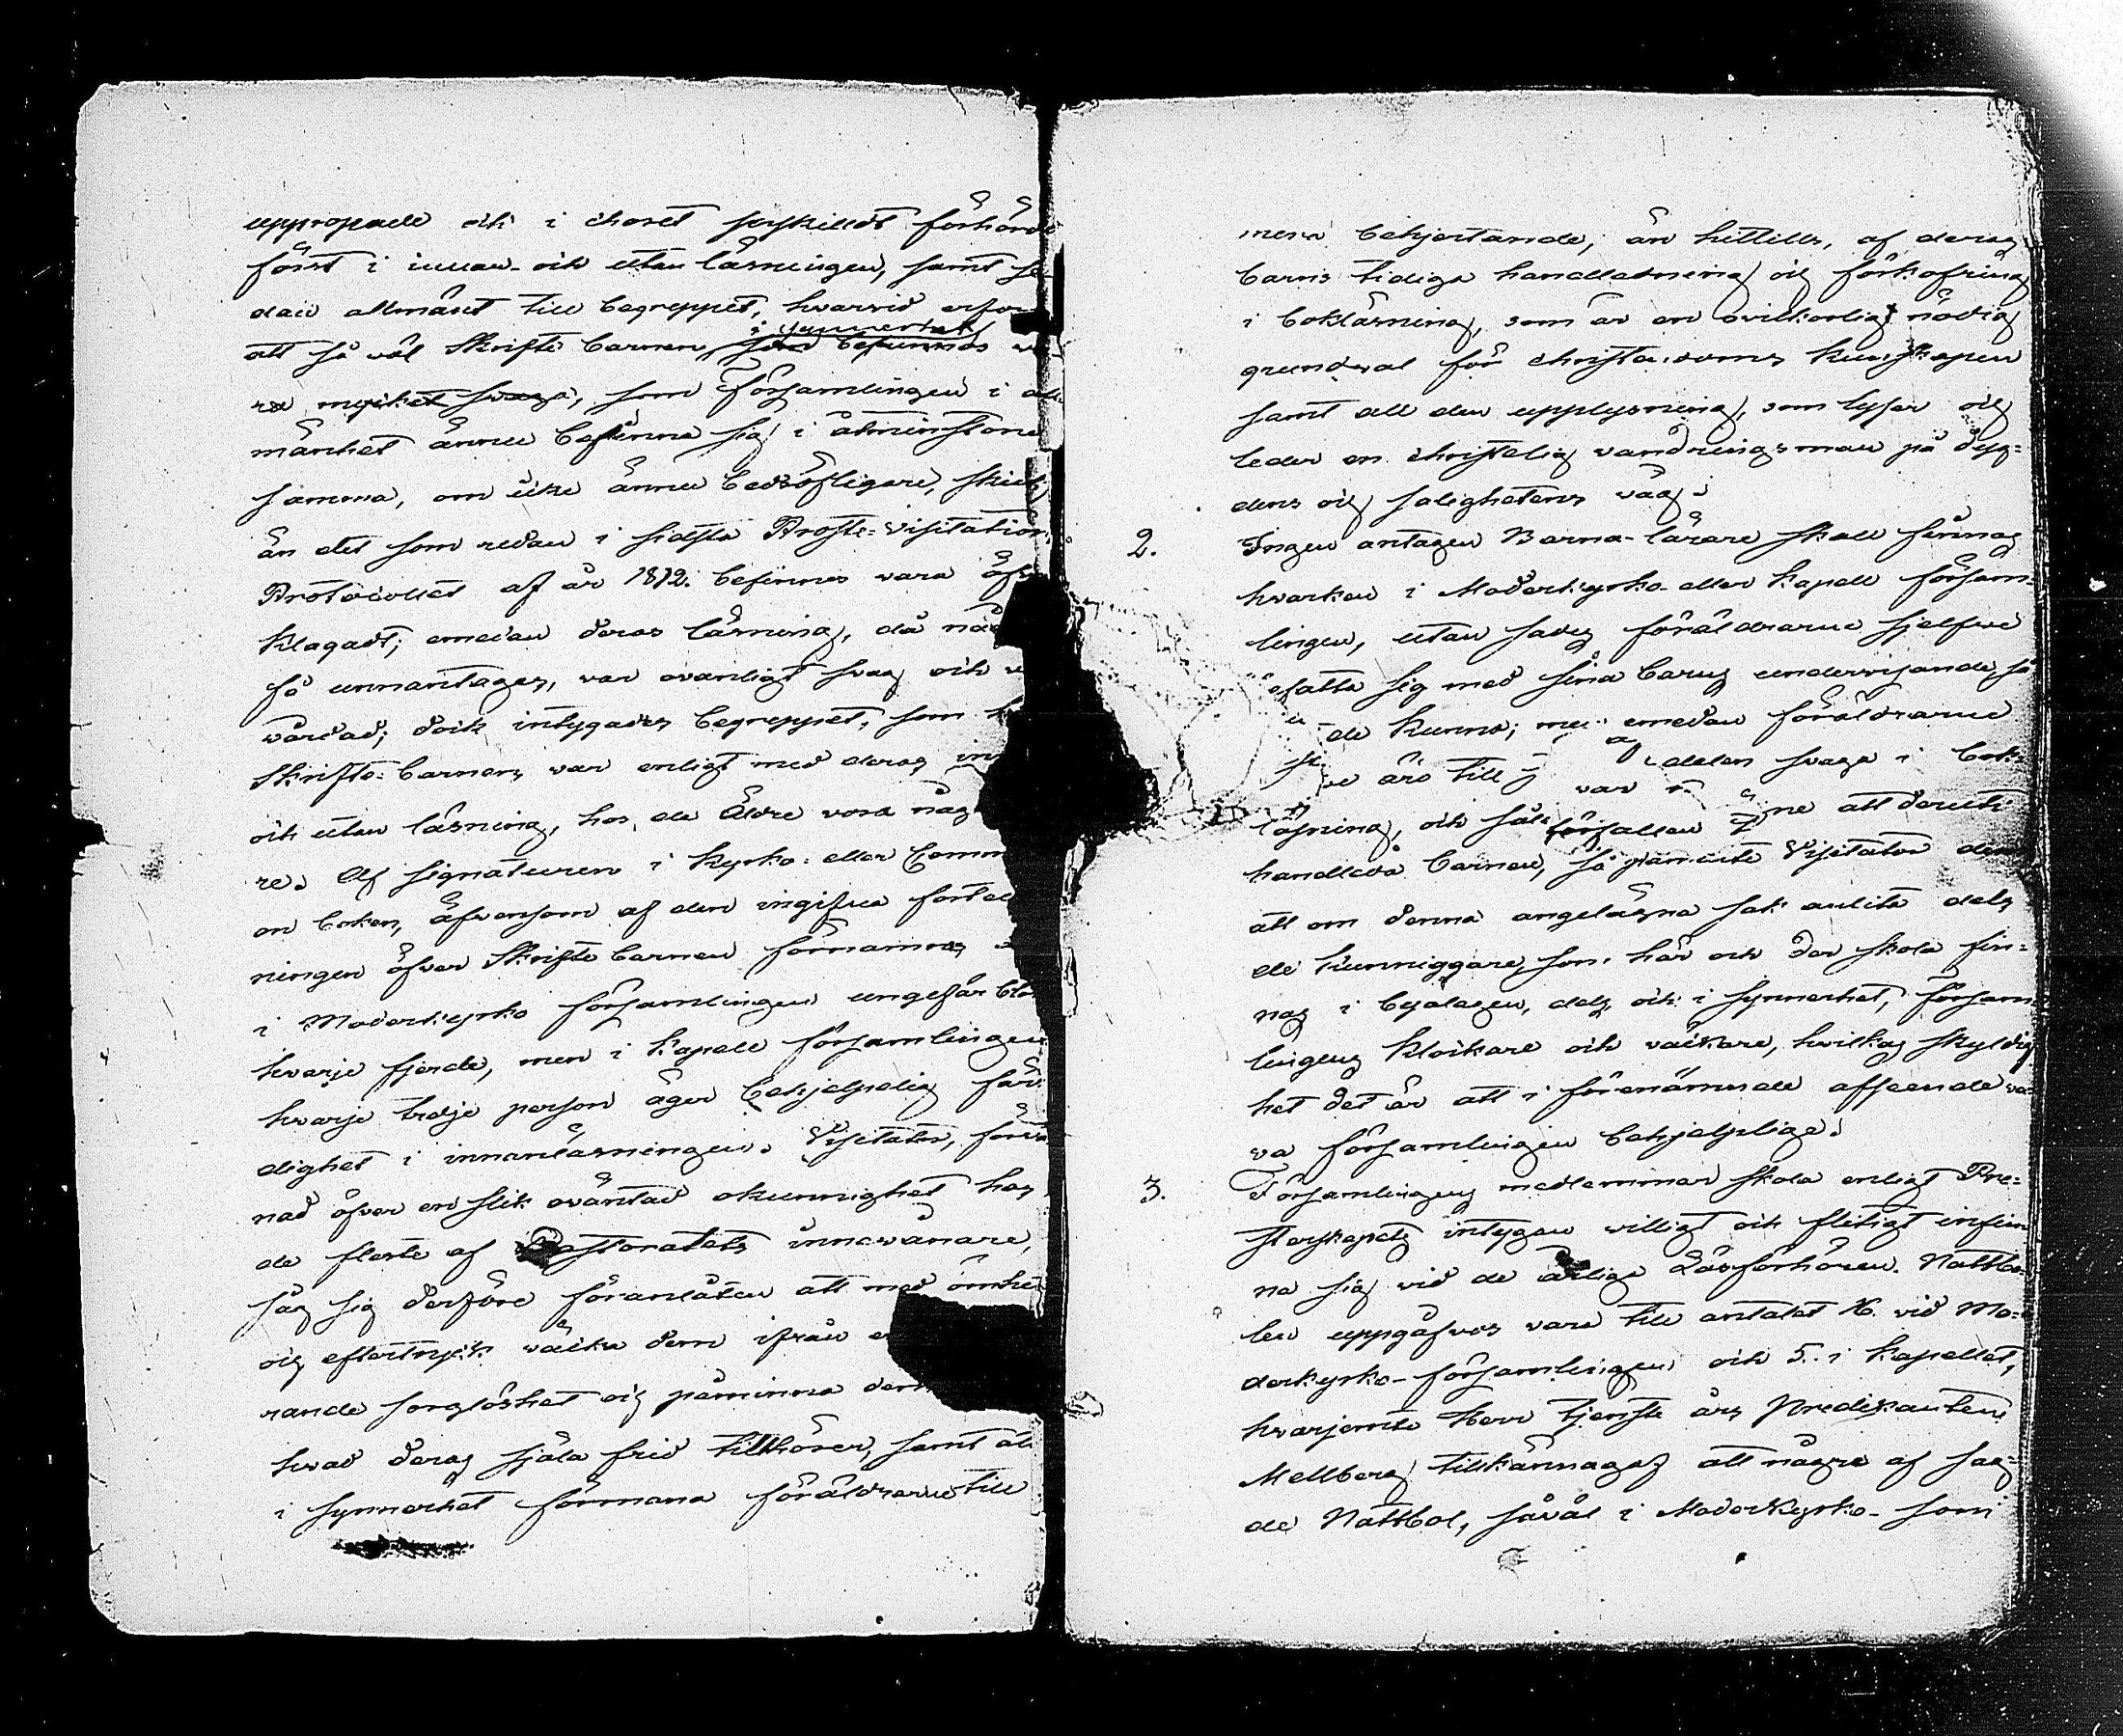 uppropade och i choret serskilldt förhörde
först i innan- och utan läsningen, samt se-
dan allmänt till begreppet, hvarvid erfors
i synnerhet
att så väl Skrifte barnen, som befunnos va-
ra mycket svaga, som Församlingen i all-
mänhet ännu befinna sig i åtminstone
samma, om icke ännu bedröfligare, skick
än det som redan i sidsta Proste-Visitations
Protocollet af år 1812. befinnes vara
klagadt; emedan deras läsning, då
få unnantages, var ovanligt svag och
vårdad; dock intygades begreppet, som
Skrifte-barnen, var enligt med deras
och utan läsning, hos de Äldre vara
re. Af signaturen i Kyrko- eller
on boken, äfvensom af den ingifna
ningen öfver Skrifte barnen förnamns
i Moderkyrko församlingen ungefär blott
hvarje fjerde, men i Kapell församlingen
hvarje tredje person äger behjelpelig fär-
dighet i innanläsningen. Visitator,
nad öfver en slik oväntad okunnighet hos
de fleste af Pastoratets innevånare,
såg sig derföre föranlåten att med ömhet
och eftertryck väcka dem ifrån
rande sorglöshet och påminna dem
hvad deras själa frid tillhörer, samt
i synnerhet förmana föräldrarne till
mera behjertande, än hittills, af deras
barns tidiga handledning och förkofring
i bokläsning, som är en ovilkorligt nödig
grundval för christendoms kunskapen
samt all den upplysning, som lyser och
leder en christelig vandringsman på dyg-
dens och salighetens väg.
2. Ingen antagen Barna-lärare skall finnas
hvarken i Moderkyrko- eller Kapell försam-
lingen, utan sades föräldrarne sjelfve
befatta sig med sina barns undervisande, så
de kunna; men emedan föräldrarne
äro till delen svaga i bok-
läsning, och att deruti
handleda barnen, så påminte Visitator dem
att om denna angelägna sak anlita dels
de kunniggare, som här och der skola fin-
nas i byalagen, dels och i synnerhet, försam-
lingens klockare och väckare, hvilkas skyldig-
het det är att i förenämnde afseende va-
ra församlingen behjelplige.
3. Församlingens medlemmar skola enligt Pre-
sterskapets intygan villigt och flitigt infin-
na sig vid de årlige Läsförhören. Nattbo-
len uppgåfvos vara till antalet 16. vid Mo-
derkyrko-församlingen och 5. i Kapellet,
hvarjemte Herr tjenste års Predikanten
Mellberg tillkännagaf att några af sag-
de Nattbol, såväl i Moderkyrko- som